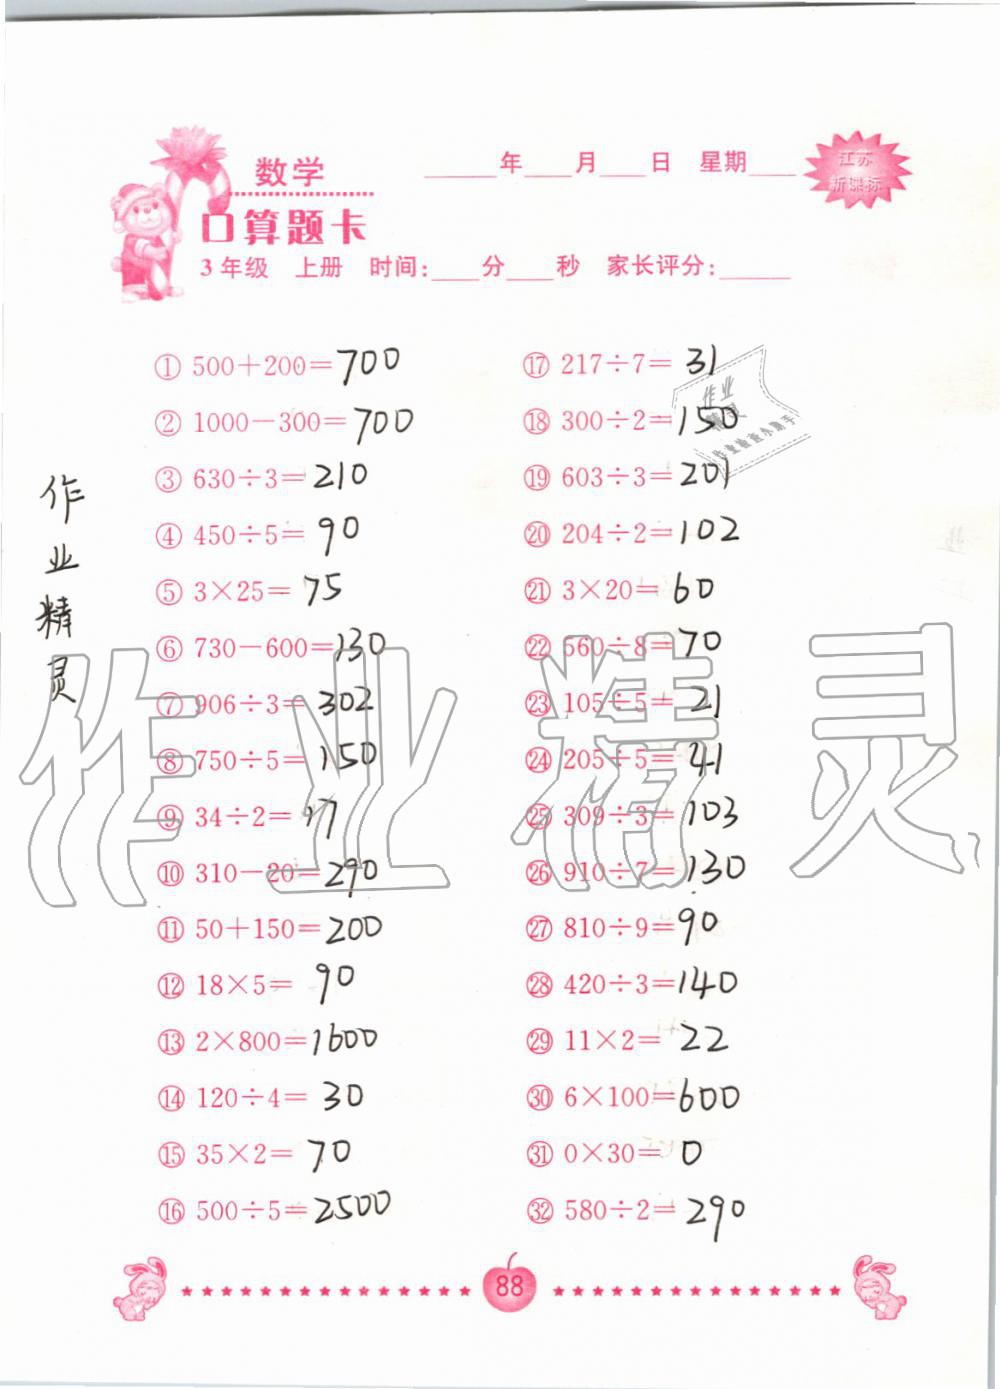 数学
____年____月____日 星期____
江苏
新课标
口算题卡
3年级 上册 时间:____分____秒 家长评分:____
① 500+200=700
② 1000-300=700
③ 630÷3=210
④ 450÷5=90
⑤ 3×25=75
⑥ 730-600=130
⑦ 906÷3=302
⑧ 750÷5=150
⑨ 34÷2=17
⑩ 310-20=290
⑪ 50+150=200
⑫ 18×5=90
⑬ 2×800=1600
⑭ 120÷4=30
⑮ 35×2=70
⑯ 500÷5=2500
⑰ 217÷7=31
⑱ 300÷2=150
⑲ 603÷3=201
⑳ 204÷2=102
㉑ 3×20=60
㉒ 560÷8=70
㉓ 105÷5=21
㉔ 205÷5=41
㉕ 309÷3=103
㉖ 910÷7=130
㉗ 810÷9=90
㉘ 420÷3=140
㉙ 11×2=22
㉚ 6×100=600
㉛ 0×30=0
㉜ 580÷2=290
作业精灵
作业精灵
作业
精灵
作业检查小助手
88